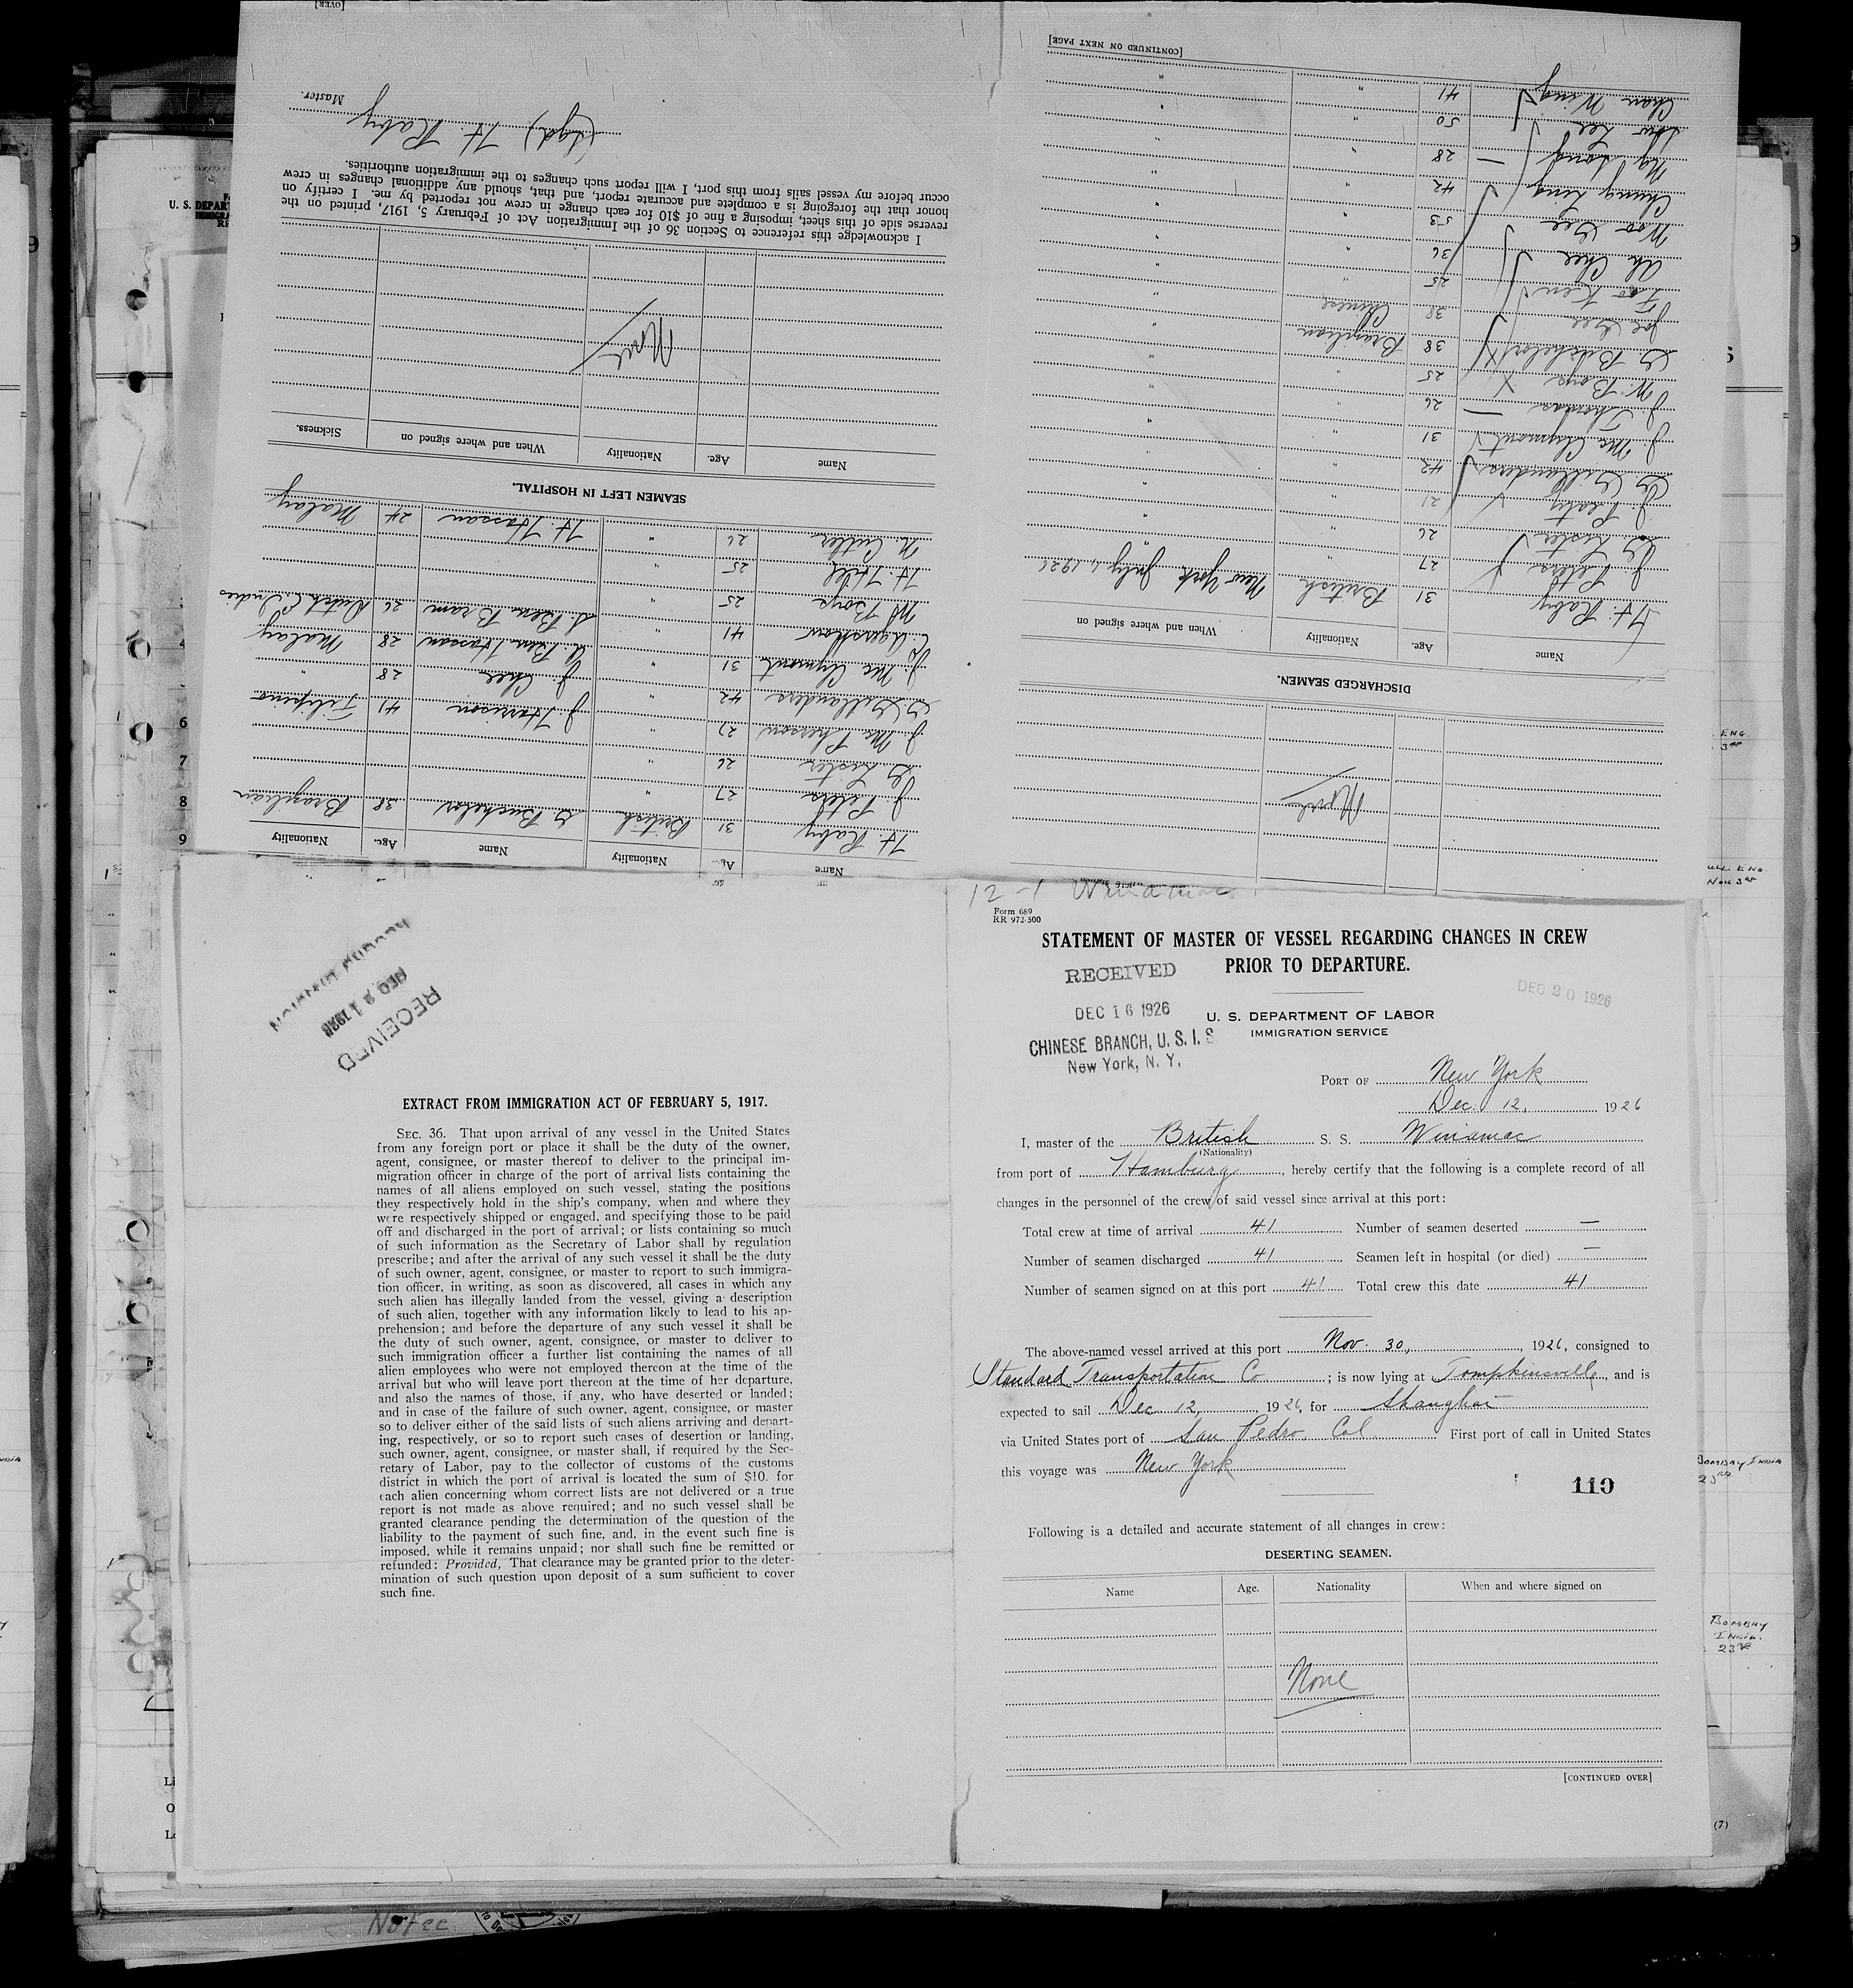 12-1 Winamac
Form 689
RR 972-500
STATEMENT OF MASTER OF VESSEL REGARDING CHANGES IN CREW
PRIOR TO DEPARTURE.
RECEIVED
DEC 16 1926
CHINESE BRANCH, U. S. I. S
New York, N. Y.
DEC 20 1926
U. S. DEPARTMENT OF LABOR
IMMIGRATION SERVICE
PORT OF New York
Dec. 12, 1926
I, master of the British S. S. Winamac
(Nationality)
from port of Hamburg, hereby certify that the following is a complete record of all
changes in the personnel of the crew of said vessel since arrival at this port:
Total crew at time of arrival 41 Number of seamen deserted —
Number of seamen discharged 41 Seamen left in hospital (or died) —
Number of seamen signed on at this port 41 Total crew this date 41
The above-named vessel arrived at this port Nov. 30, 1926, consigned to
Standard Transportation Co; is now lying at Tompkinsville, and is
expected to sail Dec 12, 1926, for Shanghai
via United States port of San Pedro Cal. First port of call in United States
this voyage was New York
110
Following is a detailed and accurate statement of all changes in crew:
DESERTING SEAMEN.
Name Age. Nationality When and where signed on
None
[CONTINUED OVER]
RECEIVED
DEC 21 1926
EXTRACT FROM IMMIGRATION ACT OF FEBRUARY 5, 1917.
SEC. 36. That upon arrival of any vessel in the United States
from any foreign port or place it shall be the duty of the owner,
agent, consignee, or master thereof to deliver to the principal im-
migration officer in charge of the port of arrival lists containing the
names of all aliens employed on such vessel, stating the positions
they respectively hold in the ship's company, when and where they
were respectively shipped or engaged, and specifying those to be paid
off and discharged in the port of arrival; or lists containing so much
of such information as the Secretary of Labor shall by regulation
prescribe; and after the arrival of any such vessel it shall be the duty
of such owner, agent, consignee, or master to report to such immigra-
tion officer, in writing, as soon as discovered, all cases in which any
such alien has illegally landed from the vessel, giving a description
of such alien, together with any information likely to lead to his ap-
prehension; and before the departure of any such vessel it shall be
the duty of such owner, agent, consignee, or master to deliver to
such immigration officer a further list containing the names of all
alien employees who were not employed thereon at the time of the
arrival but who will leave port thereon at the time of her departure,
and also the names of those, if any, who have deserted or landed;
and in case of the failure of such owner, agent, consignee, or master
so to deliver either of the said lists of such aliens arriving and depart-
ing, respectively, or so to report such cases of desertion or landing,
such owner, agent, consignee, or master shall, if required by the Sec-
retary of Labor, pay to the collector of customs of the customs
district in which the port of arrival is located the sum of $10. for
each alien concerning whom correct lists are not delivered or a true
report is not made as above required; and no such vessel shall be
granted clearance pending the determination of the question of the
liability to the payment of such fine, and, in the event such fine is
imposed, while it remains unpaid; nor shall such fine be remitted or
refunded: Provided, That clearance may be granted prior to the deter-
mination of such question upon deposit of a sum sufficient to cover
such fine.
None
DISCHARGED SEAMEN.
Name Age. Nationality When and where signed on
H. Raby 31 British New York July 1, 1926
J. Peters 27 " "
G. Lester 26 " "
J. Peaty 21 " "
G. Gillanders 42 " "
J. Mc Clymont 31 " "
J. Thomas 26 " "
W. Boys 25 " "
G. Buchelor 38 Brazilian "
Joe Gee 38 Chinese "
Foo Ken 25 " "
Ah Chee 36 " "
Woo Gee 53 " "
Chung Ling 42 " "
Ng Sang 28 " "
Low Lee 50 " "
Chan Wing 41 " "
[CONTINUED ON NEXT PAGE]
Name Age Nationality Name Age. Nationality
H. Raby 31 British G Buchelor 38 Brazilian
J Peters 27 "
G Lester 26 "
J. Mc Pherson 27 "
G Gillanders 42 " J Harrison 41 Filipino
J. Mc Clymont 31 " J. Chee 28 "
41 " A Ben Hassan 28 Malay
W Boys 25 " S. Ben Bram 26 Dutch E. Indies
H. Hill 25 "
N. Cutler 26 " H. Hassan 24 Malay
SEAMEN LEFT IN HOSPITAL.
Name Age. Nationality When and where signed on Sickness.
None
I acknowledge this reference to Section 36 of the Immigration Act of February 5, 1917, printed on the
reverse side of this sheet, imposing a fine of $10 for each change in crew not reported by me. I certify on
honor that the foregoing is a complete and accurate report, and that, should any additional changes in crew
occur before my vessel sails from this port, I will report such changes to the immigration authorities.
(Sgd) H. Raby
Master.
[OVER]
U. S. DEPAR
4
6
7
8
9
ENG.
ENG.
BOMBAY INDIA
23RD
BOMBAY
INDIA.
23
(7)